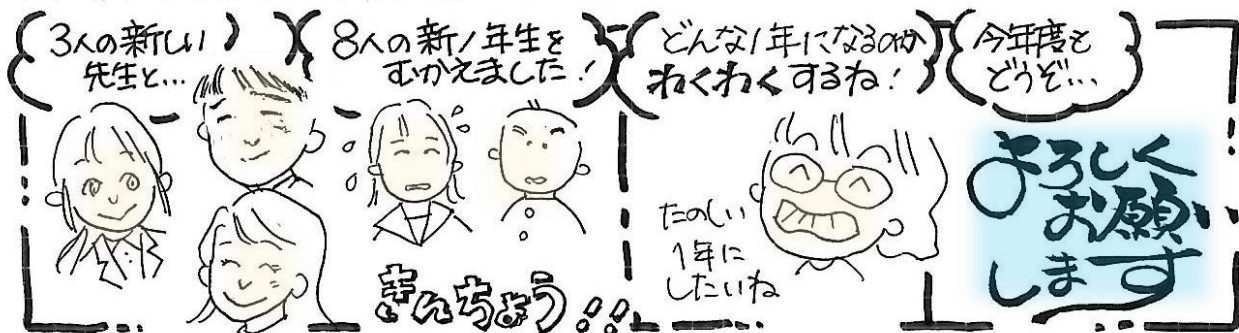 3人の新しい
先生と…
8人の新1年生を
むかえました!
きんちょう!!
どんな1年になるのか
わくわくするね!
たのしい
1年に
したいね
今年度も
どうぞ…
よろしく
お願い
します